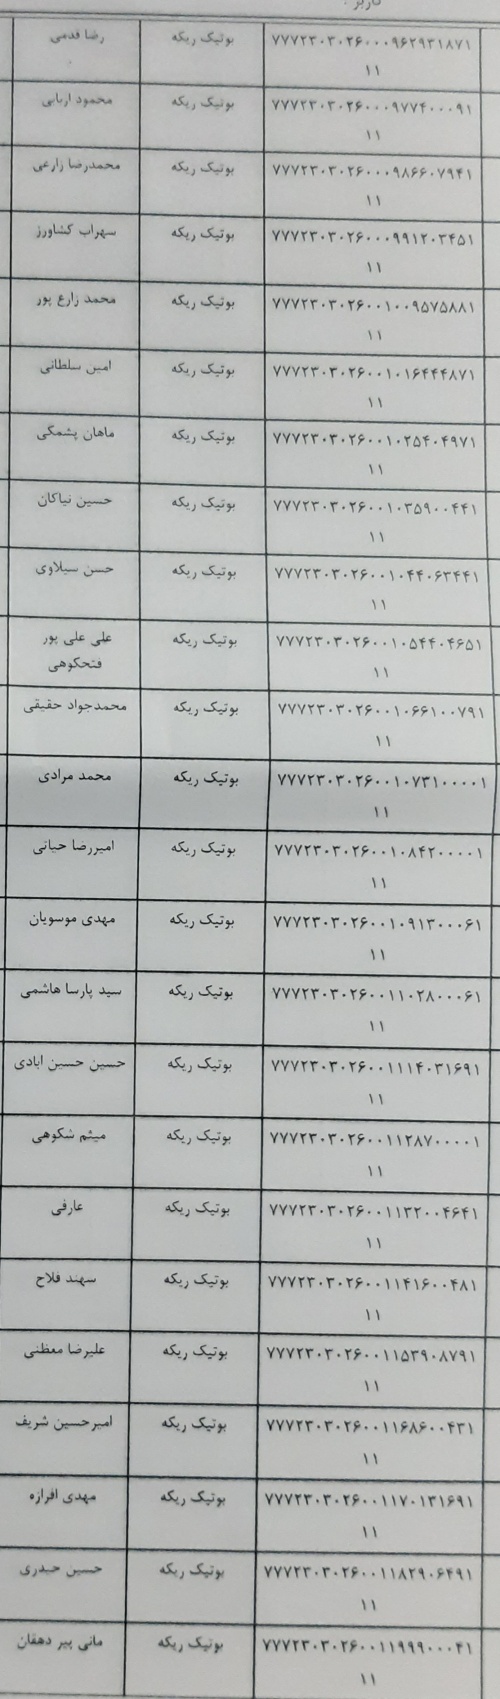 کاربر :
۷۷۷۲۳۰۳۰۲۶۰۰۰۹۶۲۹۳۱۸۷۱ بوتیک ریکه رضا قدمی
۱۱
۷۷۷۲۳۰۳۰۲۶۰۰۰۹۷۷۴۰۰۰۹۱ بوتیک ریکه محمود اربابی
۱۱
۷۷۷۲۳۰۳۰۲۶۰۰۰۹۸۶۶۰۷۹۴۱ بوتیک ریکه محمدرضا زارعی
۱۱
۷۷۷۲۳۰۳۰۲۶۰۰۰۹۹۱۲۰۳۴۵۱ بوتیک ریکه سهراب کشاورز
۱۱
۷۷۷۲۳۰۳۰۲۶۰۰۱۰۰۹۵۷۵۸۸۱ بوتیک ریکه محمد زارع پور
۱۱
۷۷۷۲۳۰۳۰۲۶۰۰۱۰۱۶۴۴۴۸۷۱ بوتیک ریکه امین سلطانی
۱۱
۷۷۷۲۳۰۳۰۲۶۰۰۱۰۲۵۴۰۴۹۷۱ بوتیک ریکه ماهان پشمکی
۱۱
۷۷۷۲۳۰۳۰۲۶۰۰۱۰۳۵۹۰۰۴۴۱ بوتیک ریکه حسین نیاکان
۱۱
۷۷۷۲۳۰۳۰۲۶۰۰۱۰۴۴۰۶۳۴۴۱ بوتیک ریکه حسن سیلاوی
۱۱
۷۷۷۲۳۰۳۰۲۶۰۰۱۰۵۴۴۰۴۶۵۱ بوتیک ریکه علی علی پور
۱۱ فتحکوهی
۷۷۷۲۳۰۳۰۲۶۰۰۱۰۶۶۱۰۰۷۹۱ بوتیک ریکه محمدجواد حقیقی
۱۱
۷۷۷۲۳۰۳۰۲۶۰۰۱۰۷۳۱۰۰۰۰۱ بوتیک ریکه محمد مرادی
۱۱
۷۷۷۲۳۰۳۰۲۶۰۰۱۰۸۴۲۰۰۰۰۱ بوتیک ریکه امیررضا حیاتی
۱۱
۷۷۷۲۳۰۳۰۲۶۰۰۱۰۹۱۳۰۰۰۶۱ بوتیک ریکه مهدی موسویان
۱۱
۷۷۷۲۳۰۳۰۲۶۰۰۱۱۰۲۸۰۰۰۶۱ بوتیک ریکه سید پارسا هاشمی
۱۱
۷۷۷۲۳۰۳۰۲۶۰۰۱۱۱۴۰۳۱۶۹۱ بوتیک ریکه حسین حسین ابادی
۱۱
۷۷۷۲۳۰۳۰۲۶۰۰۱۱۲۸۷۰۰۰۰۱ بوتیک ریکه میثم شکوهی
۱۱
۷۷۷۲۳۰۳۰۲۶۰۰۱۱۳۲۰۰۴۶۴۱ بوتیک ریکه عارفی
۱۱
۷۷۷۲۳۰۳۰۲۶۰۰۱۱۴۱۶۰۰۴۸۱ بوتیک ریکه سهند فلاح
۱۱
۷۷۷۲۳۰۳۰۲۶۰۰۱۱۵۳۹۰۸۷۹۱ بوتیک ریکه علیرضا معظنی
۱۱
۷۷۷۲۳۰۳۰۲۶۰۰۱۱۶۸۶۰۰۴۳۱ بوتیک ریکه امیرحسین شریف
۱۱
۷۷۷۲۳۰۳۰۲۶۰۰۱۱۷۰۱۳۱۶۹۱ بوتیک ریکه مهدی افرازه
۱۱
۷۷۷۲۳۰۳۰۲۶۰۰۱۱۸۲۹۰۶۴۹۱ بوتیک ریکه حسین حیدری
۱۱
۷۷۷۲۳۰۳۰۲۶۰۰۱۱۹۹۹۰۰۰۴۱ بوتیک ریکه مانی پیر دهقان
۱۱